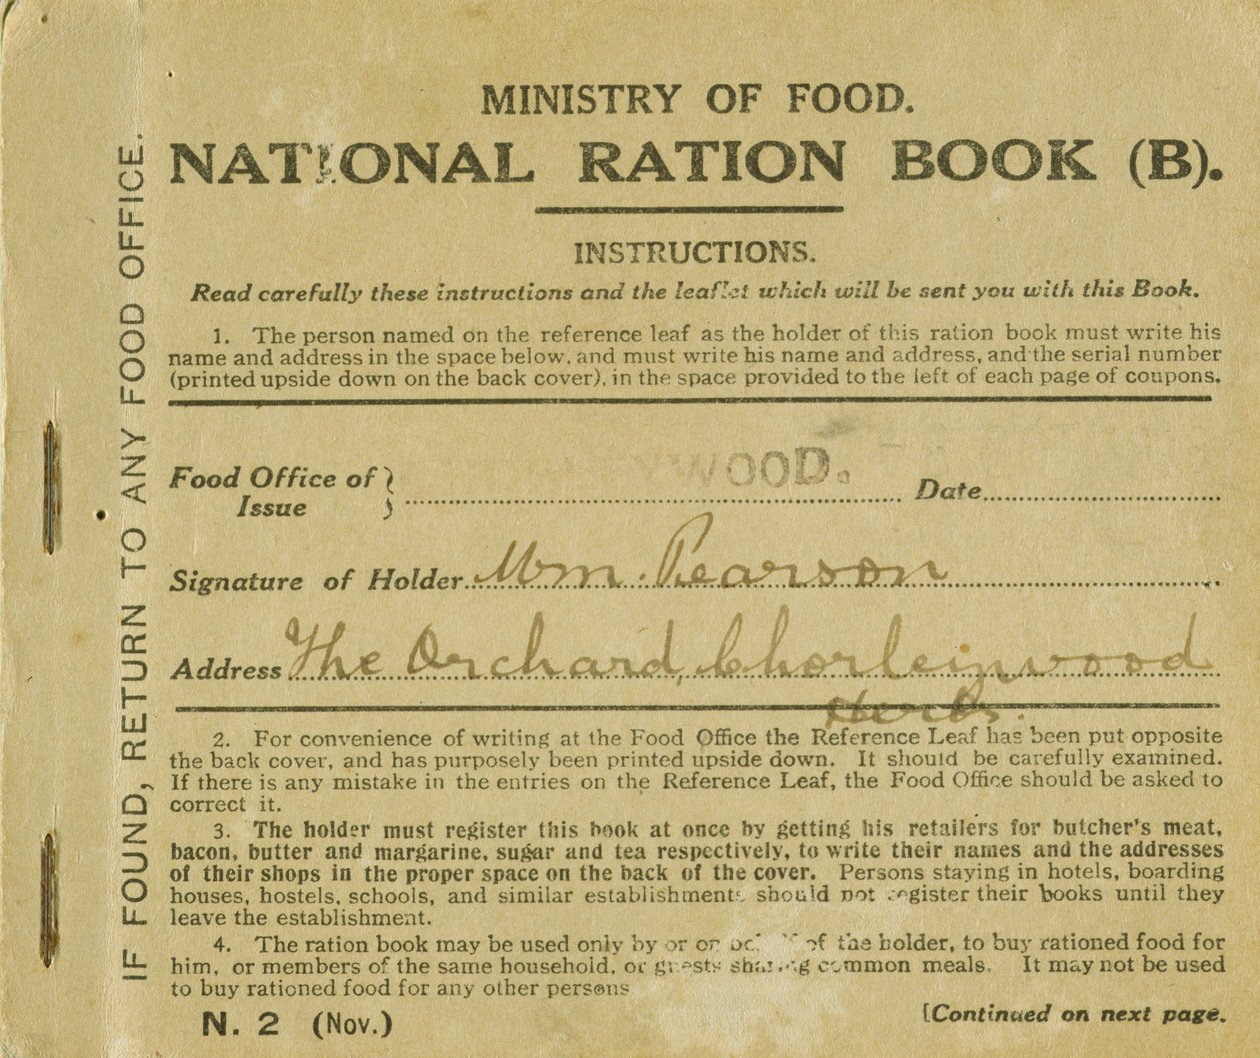 MINISTRY OF FOOD.
NATIONAL RATION BOOK (B).
INSTRUCTIONS.
Read carefully these instructions and the leaflet which will be sent you with this Book.
1. The person named on the reference leaf as the holder of this ration book must write his
name and address in the space below, and must write his name and address, and the serial number
(printed upside down on the back cover), in the space provided to the left of each page of coupons.
WOOD.
Food Office of Issue } Date
Signature of Holder Wm. Pearson
Address The Orchard, Chorleywood
Herts.
2. For convenience of writing at the Food Office the Reference Leaf has been put opposite
the back cover, and has purposely been printed upside down. It should be carefully examined.
If there is any mistake in the entries on the Reference Leaf, the Food Office should be asked to
correct it.
3. The holder must register this book at once by getting his retailers for butcher's meat,
bacon, butter and margarine, sugar and tea respectively, to write their names and the addresses
of their shops in the proper space on the back of the cover. Persons staying in hotels, boarding
houses, hostels, schools, and similar establishments should not register their books until they
leave the establishment.
4. The ration book may be used only by or on behalf of the holder, to buy rationed food for
him, or members of the same household, or guests sharing common meals. It may not be used
to buy rationed food for any other persons
N. 2 (Nov.)
[Continued on next page.
IF FOUND, RETURN TO ANY FOOD OFFICE.